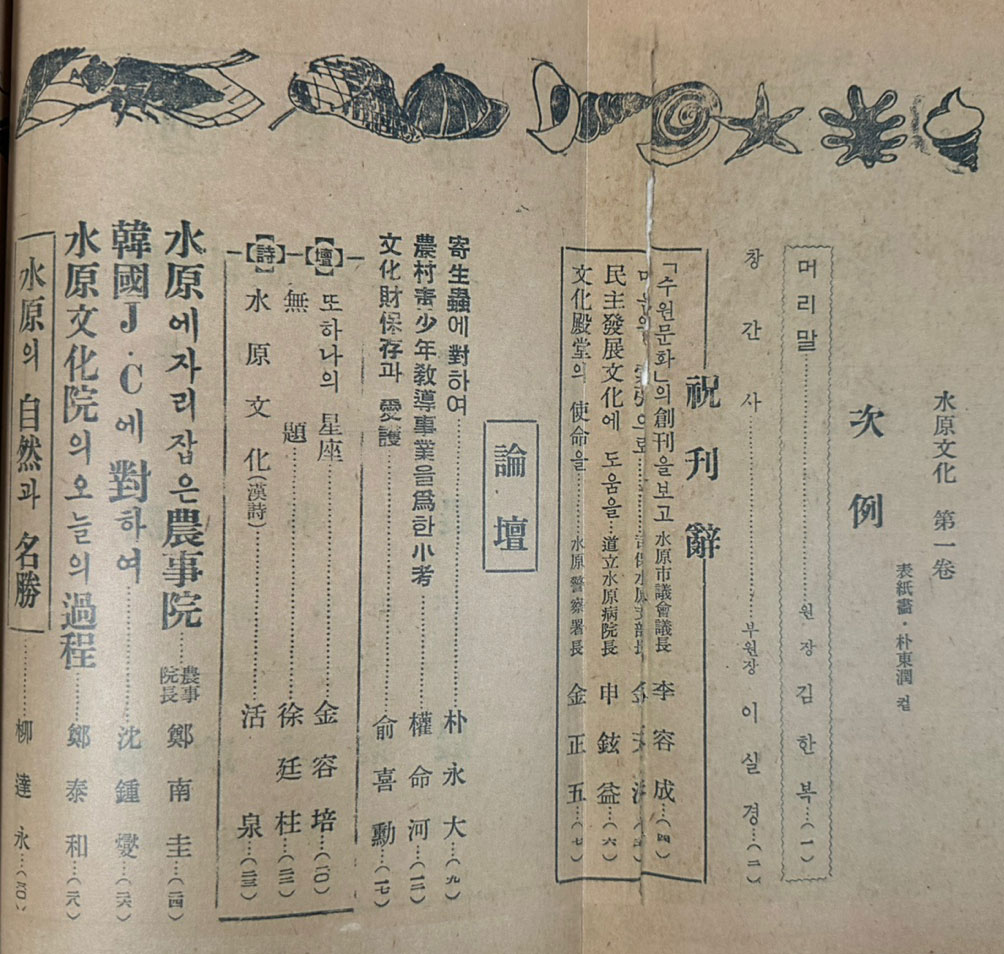 水原文化 第一卷
表紙畵·朴東潤 컽
次例
머리말……………원장 김한복…(一)
창간사……………부원장 이실경…(二)
祝刊辭
「수원문화」의 創刊을보고 水原市議會議長 李容成…(四)
水原支部長
民主發展文化에 도움을…道立水原病院長 申鉉益…(六)
文化殿堂의 使命을……水原警察署長 金正五…(七)
論壇
寄生蟲에對하여……………朴永大…(九)
農村靑少年敎導事業을爲한小考……權命河…(一二)
文化財保存과 愛護……………兪喜勳…(一七)
【詩】【壇】
또하나의 星座……………金容培…(二〇)
無題……………徐廷柱…(二二)
水原文化(漢詩)……………活泉…(二三)
水原에자리잡은農事院……農事院長 鄭南圭…(二四)
韓國J·C에對하여……………沈鍾燮…(二六)
水原文化院의오늘의過程……鄭泰和…(二八)
水原의 自然과 名勝……柳達永…(四〇)